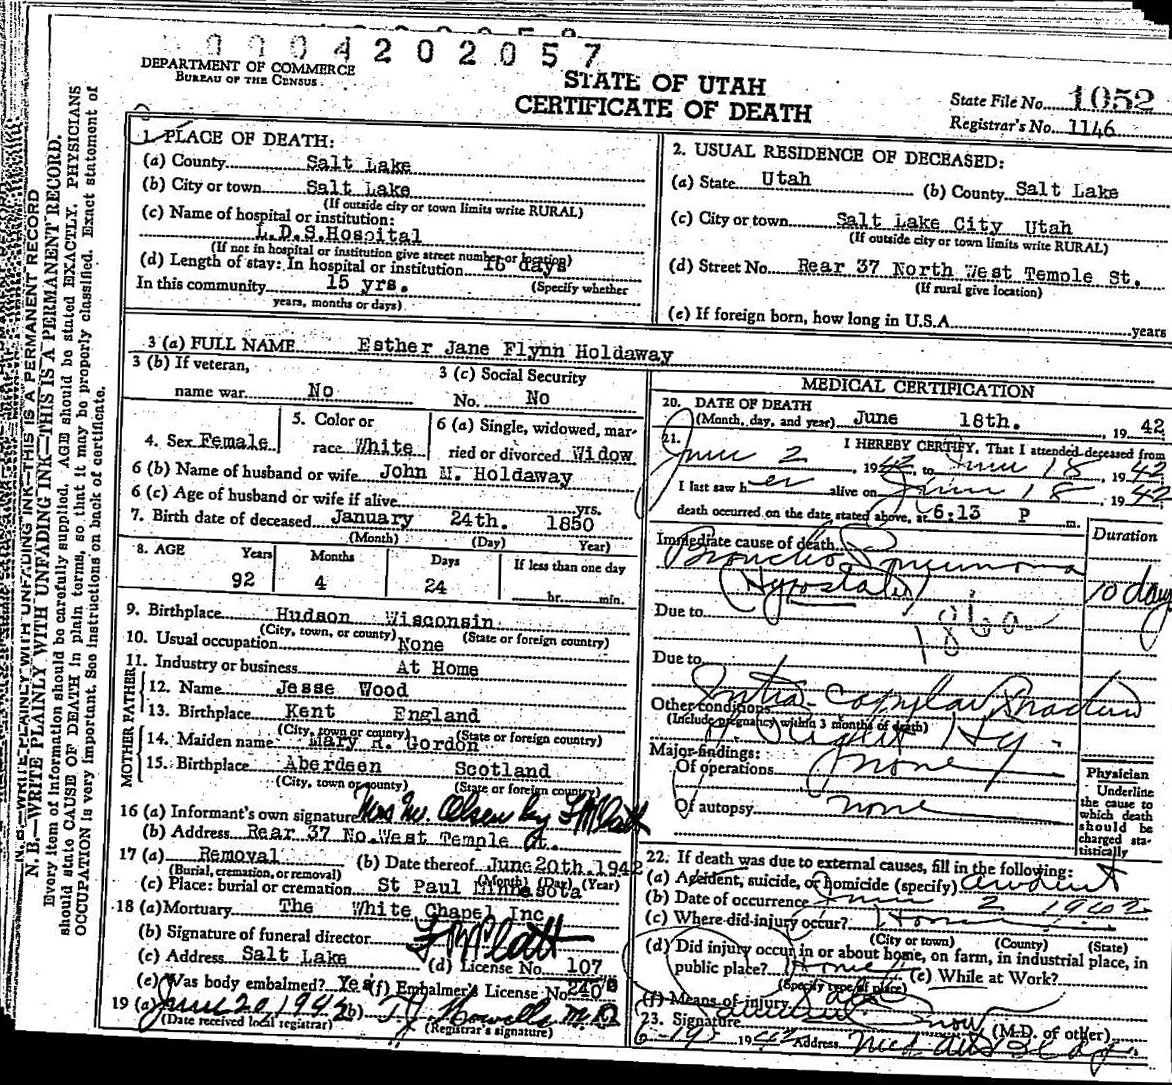 0004202057
DEPARTMENT OF COMMERCE
BUREAU OF THE CENSUS
STATE OF UTAH
CERTIFICATE OF DEATH
State File No. 1052
Registrar's No. 1146
N. B.—WRITE PLAINLY WITH UNFADING INK—THIS IS A PERMANENT RECORD.
Every item of information should be carefully supplied. AGE should be stated EXACTLY. PHYSICIANS
should state CAUSE OF DEATH in plain terms, so that it may be properly classified. Exact statement of
OCCUPATION is very important. See instructions on back of certificate.
1. PLACE OF DEATH:
(a) County Salt Lake
(b) City or town Salt Lake
(If outside city or town limits write RURAL)
(c) Name of hospital or institution:
L.D.S.Hospital
(If not in hospital or institution give street number or location)
(d) Length of stay: In hospital or institution 16 days
In this community 15 yrs. (Specify whether
years, months or days)
2. USUAL RESIDENCE OF DECEASED:
(a) State Utah (b) County Salt Lake
(c) City or town Salt Lake City Utah
(If outside city or town limits write RURAL)
(d) Street No. Rear 37 North West Temple St.
(If rural give location)
(e) If foreign born, how long in U.S.A. years
3 (a) FULL NAME Esther Jane Flynn Holdaway
3 (b) If veteran,
name war No
3 (c) Social Security
No. No
4. Sex Female
5. Color or
race White
6 (a) Single, widowed, mar-
ried or divorced Widow
6 (b) Name of husband or wife John M. Holdaway
6 (c) Age of husband or wife if alive yrs.
7. Birth date of deceased January 24th. 1850
(Month) (Day) Year)
8. AGE Years Months Days If less than one day
92 4 24 hr. min.
9. Birthplace Hudson Wisconsin
(City, town, or county) (State or foreign country)
10. Usual occupation None
11. Industry or business At Home
FATHER
12. Name Jesse Wood
13. Birthplace Kent England
(City, town or county) (State or foreign country)
MOTHER
14. Maiden name Mary R. Gordon
15. Birthplace Aberdeen Scotland
(City, town or county) (State or foreign country)
16 (a) Informant's own signature Mrs M. Olsen by
(b) Address Rear 37 No.West Temple St.
17 (a) Removal (b) Date thereof June 20th. 1942
(Burial, cremation, or removal) (Month) (Day) (Year)
(c) Place: burial or cremation St Paul Minnesota
18 (a) Mortuary The White Chapel Inc
(b) Signature of funeral director
(c) Address Salt Lake (d) License No. 107
(e) Was body embalmed? Yes (f) Embalmer's License No. 240
19 (a) June 20, 1942 (b) T.J. Howells M.D.
(Date received local registrar) (Registrar's signature)
MEDICAL CERTIFICATION
20. DATE OF DEATH
(Month, day, and year) June 18th. 19 42
21. I HEREBY CERTIFY, That I attended deceased from
June 2, 1942 to June 18, 1942
I last saw her alive on June 18, 1942
death occurred on the date stated above, at 6:13 P m.
Immediate cause of death Duration
Broncho Pneumonia
(Hypostatic) 10 days
Due to 186a
Due to
Other conditions
(Include pregnancy within 3 months of death)
Right
Major findings:
Of operations none
Of autopsy none
Physician
Underline
the cause to
which death
should be
charged sta-
tistically
22. If death was due to external causes, fill in the following:
(a) Accident, suicide, or homicide (specify) accident
(b) Date of occurrence June 2 1942
(c) Where did injury occur? Home
(City or town) (County) (State)
(d) Did injury occur in or about home, on farm, in industrial place, in
public place? Home (e) While at Work?
(Specify type of place)
(f) Means of injury
23. Signature Snow (M.D. or other)
6-19 1942 Address Med Arts Bldg.